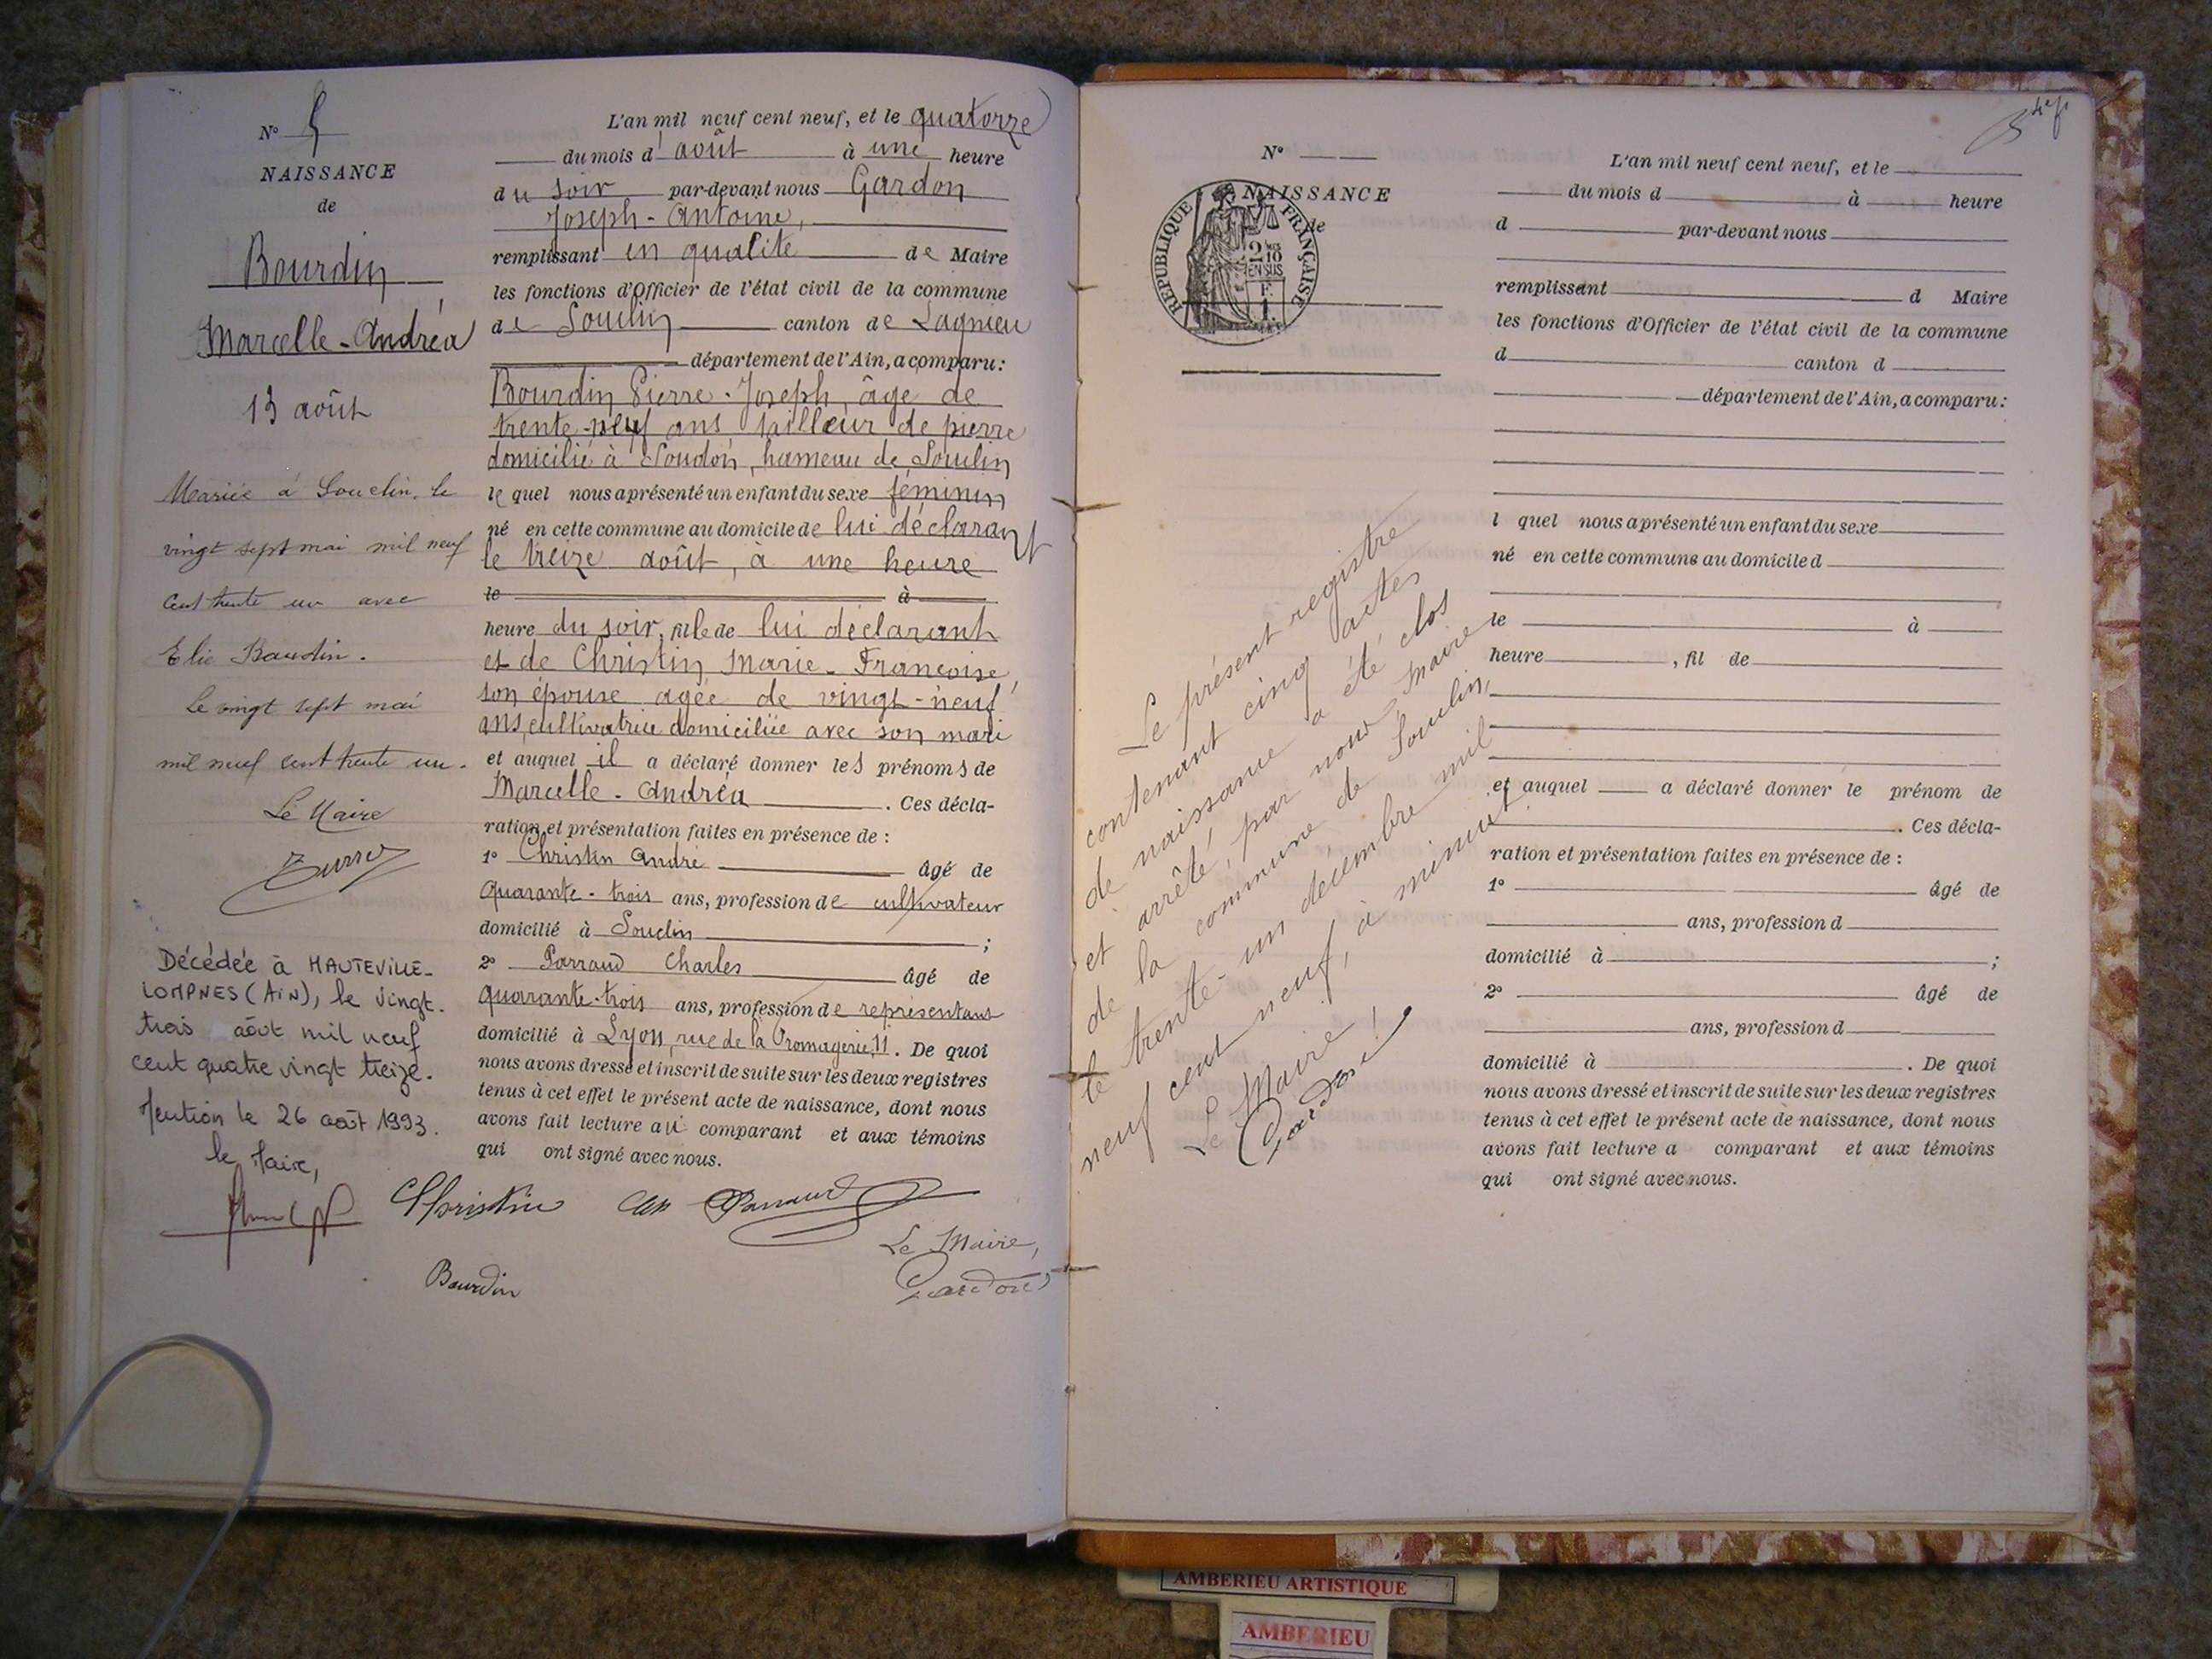 N° 5
NAISSANCE
de
Bourdin
Marcelle-Andréa
13 août
Mariée à Souclin, le
vingt sept mai mil neuf
cent trente un avec
Elie Baudin.
Le vingt sept mai
mil neuf cent trente un.
Le Maire
Décédée à HAUTEVILLE-
LOMPNES (AIN), le vingt.
trois août mil neuf
cent quatre vingt treize.
Mention le 26 août 1993.
le Maire,
L'an mil neuf cent neuf, et le quatorze
du mois d'août à une heure
du soir par-devant nous Gardon
Joseph-Antoine,
remplissant en qualité de Maire
les fonctions d'Officier de l'état civil de la commune
de Souclin canton de Lagnieu
département de l'Ain, a comparu:
Bourdin Pierre-Joseph, âge de
trente-neuf ans tailleur de pierre
domicilié à Soudon, hameau de Souclin
le quel nous a présenté un enfant du sexe féminin
né en cette commune au domicile de lui déclarant
le treize août, à une heure
le à
heure du soir, fille de lui déclarant
et de Christin Marie-Françoise,
son épouse agée de vingt-neuf
ans, cultivatrice domiciliée avec son mari
et auquel il a déclaré donner les prénoms de
Marcelle-Andréa. Ces décla-
ration et présentation faites en présence de :
1° Christin André âgé de
quarante-trois ans, profession de cultivateur
domicilié à Souclin ;
2° Parraud Charles âgé de
quarante-trois ans, profession de représentant
domicilié à Lyon, rue de la Fromagerie, 11. De quoi
nous avons dressé et inscrit de suite sur les deux registres
tenus à cet effet le présent acte de naissance, dont nous
avons fait lecture au comparant et aux témoins
qui ont signé avec nous.
Christin an Parraud
Le Maire,
Bourdin
Gardon
N°
NAISSANCE
de
REPUBLIQUE FRANÇAISE
2 10
EN SUS
F.
1.
Le présent registre
contenant cinq actes
de naissance a été clos
et arrêté, par nous Maire
de la commune de Souclin,
le trente-un décembre mil
neuf cent neuf, à minuit.
Le Maire!
Gardon
L'an mil neuf cent neuf, et le
du mois d à heure
d par-devant nous
remplissant d Maire
les fonctions d'Officier de l'état civil de la commune
d canton d
département de l'Ain, a comparu:
l quel nous a présenté un enfant du sexe
né en cette commune au domicile d
le à
heure , fil de
et auquel a déclaré donner le prénom de
. Ces décla-
ration et présentation faites en présence de :
1° âgé de
ans, profession d
domicilié à ;
2° âgé de
ans, profession d
domicilié à . De quoi
nous avons dressé et inscrit de suite sur les deux registres
tenus à cet effet le présent acte de naissance, dont nous
avons fait lecture a comparant et aux témoins
qui ont signé avec nous.
AMBERIEU ARTISTIQUE
AMBERIEU